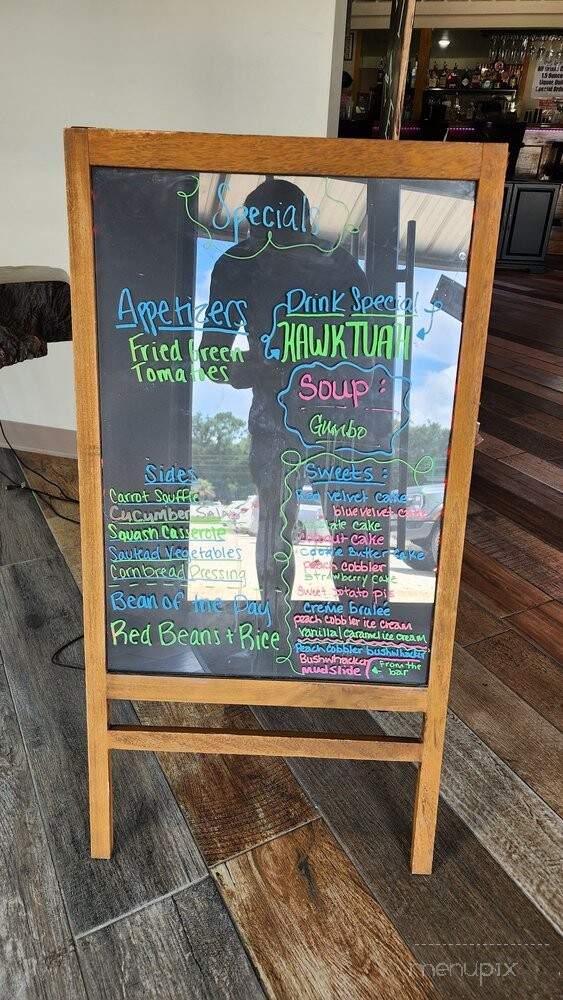 Specials
Appetizers
Fried Green
Tomatoes
Drink Special
HAWKTUAH
Soup:
Gumbo
Sides
Carrot Souffle
Cucumber Salad
Squash Casserole
Sautead Vegetables
Cornbread Dressing
Bean of the Day
Red Beans + Rice
Sweets:
Red velvet cake
blue velvet cake
cake
cake
Cookie Butter Cake
peach cobbler
strawberry cake
sweet potato pie
creme brulee
peach cobbler ice cream
vanilla/caramel ice cream
Peach cobbler bushwhacker
Bushwhacker
mudslide
from the
bar
1.5 Ounce
Special Order
menupix